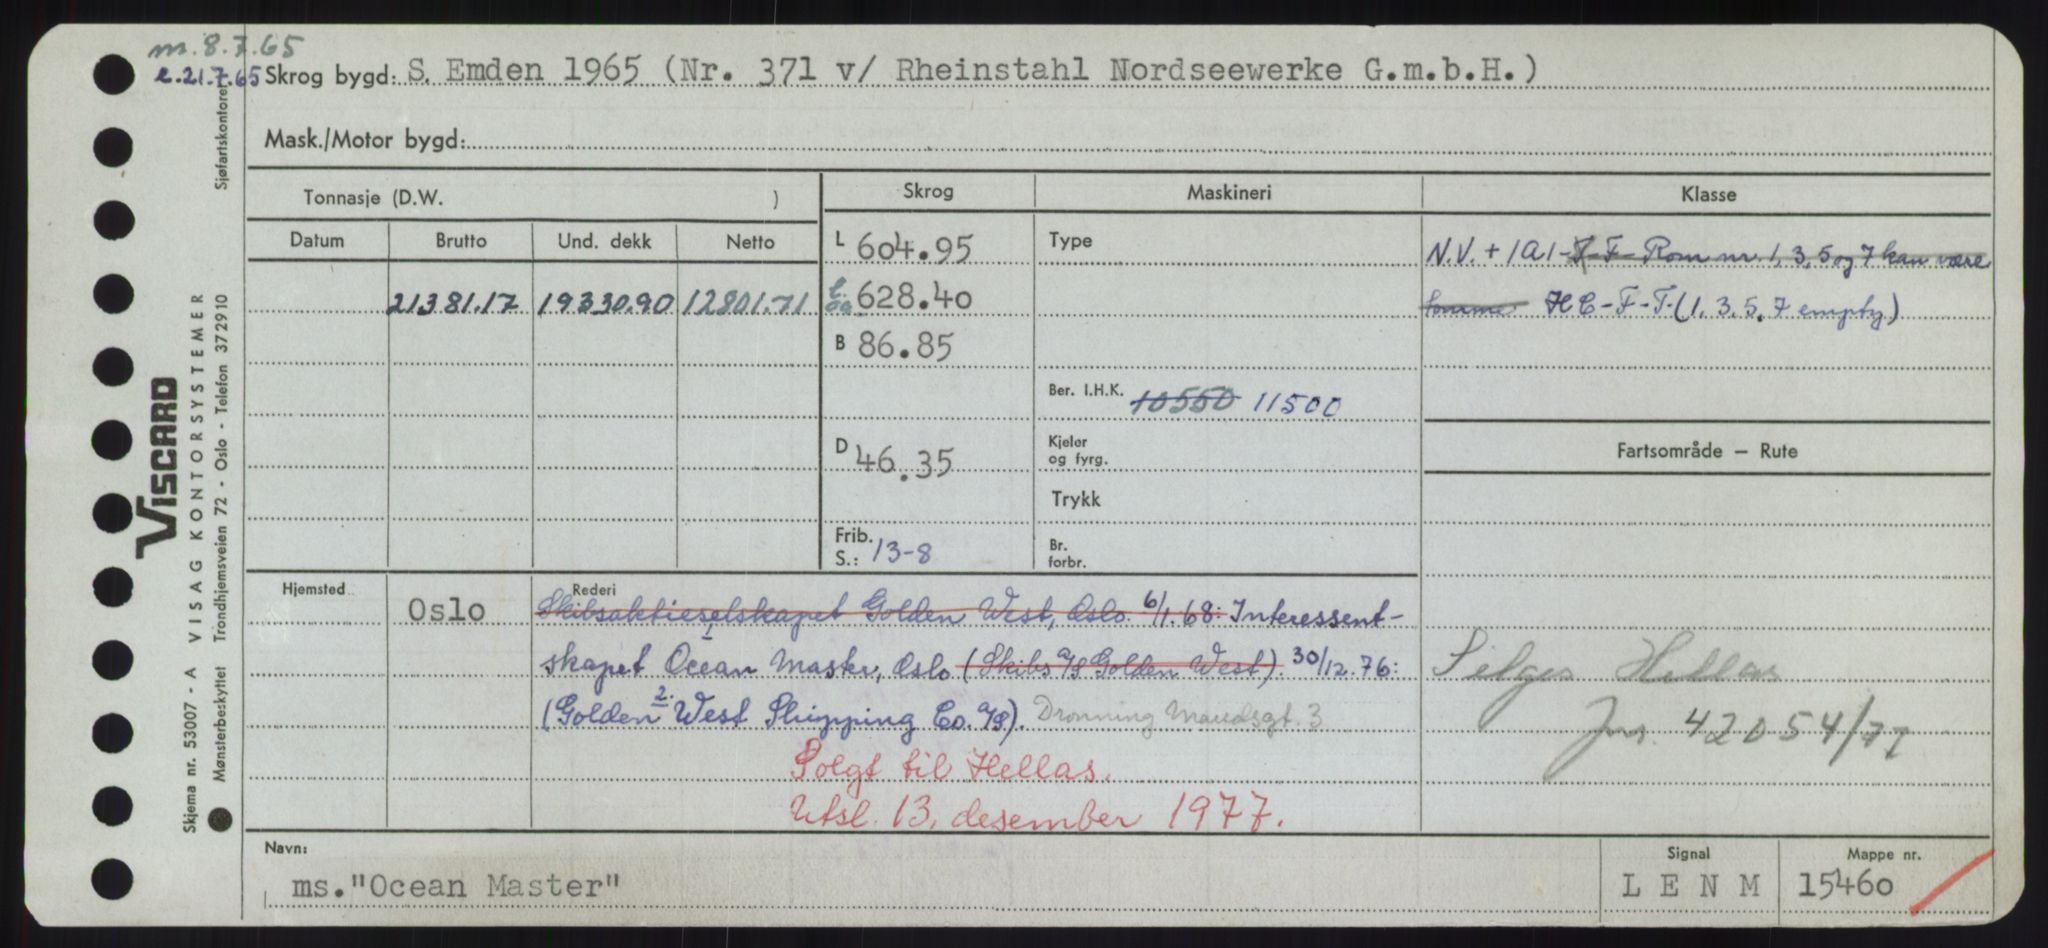 m. 8.7.65
e. 21.7.65 Skrog bygd: S. Emden 1965 (Nr. 371 v/ Rheinstahl Nordseewerke G.m.b.H.)
Mask./Motor bygd:
Tonnasje (D.W. )
Skrog
Maskineri
Klasse
Datum
Brutto
Und. dekk
Netto
21381.17 19330.90 12801.71
L 604.95
628.40
B 86.85
D 46.35
Frib. S.: 13-8
Type
Ber. I.H.K. 10550 11500
Kjeler
og fyrg.
Trykk
Br.
forbr.
N.V. + 1A1 - F - Rom nr. 1, 3, 5 og 7 kan være
tomme HC-F-T-(1.3.5.7 empty)
Fartsområde — Rute
Selges Hellas
Jnr. 42054/77
Hjemsted
Oslo
Rederi
Skibsaktieselskapet Golden West, Oslo. 6/1.68: Interessent-
skapet Ocean Master, Oslo (Skibs A/S Golden West). 30/12.76:
(Golden West Shipping Co. A/S). Dronning Maudsgt. 3
Solgt til Hellas.
Utsl. 13. desember 1977.
Navn:
ms."Ocean Master"
Signal
L E N M
Mappe nr.
15460
VISCARD
Skjema nr. 53007 - A VISAG KONTORSYSTEMER
Mønsterbeskyttet Trondhjemsveien 72 - Oslo - Telefon 372910
Sjøfartskontoret